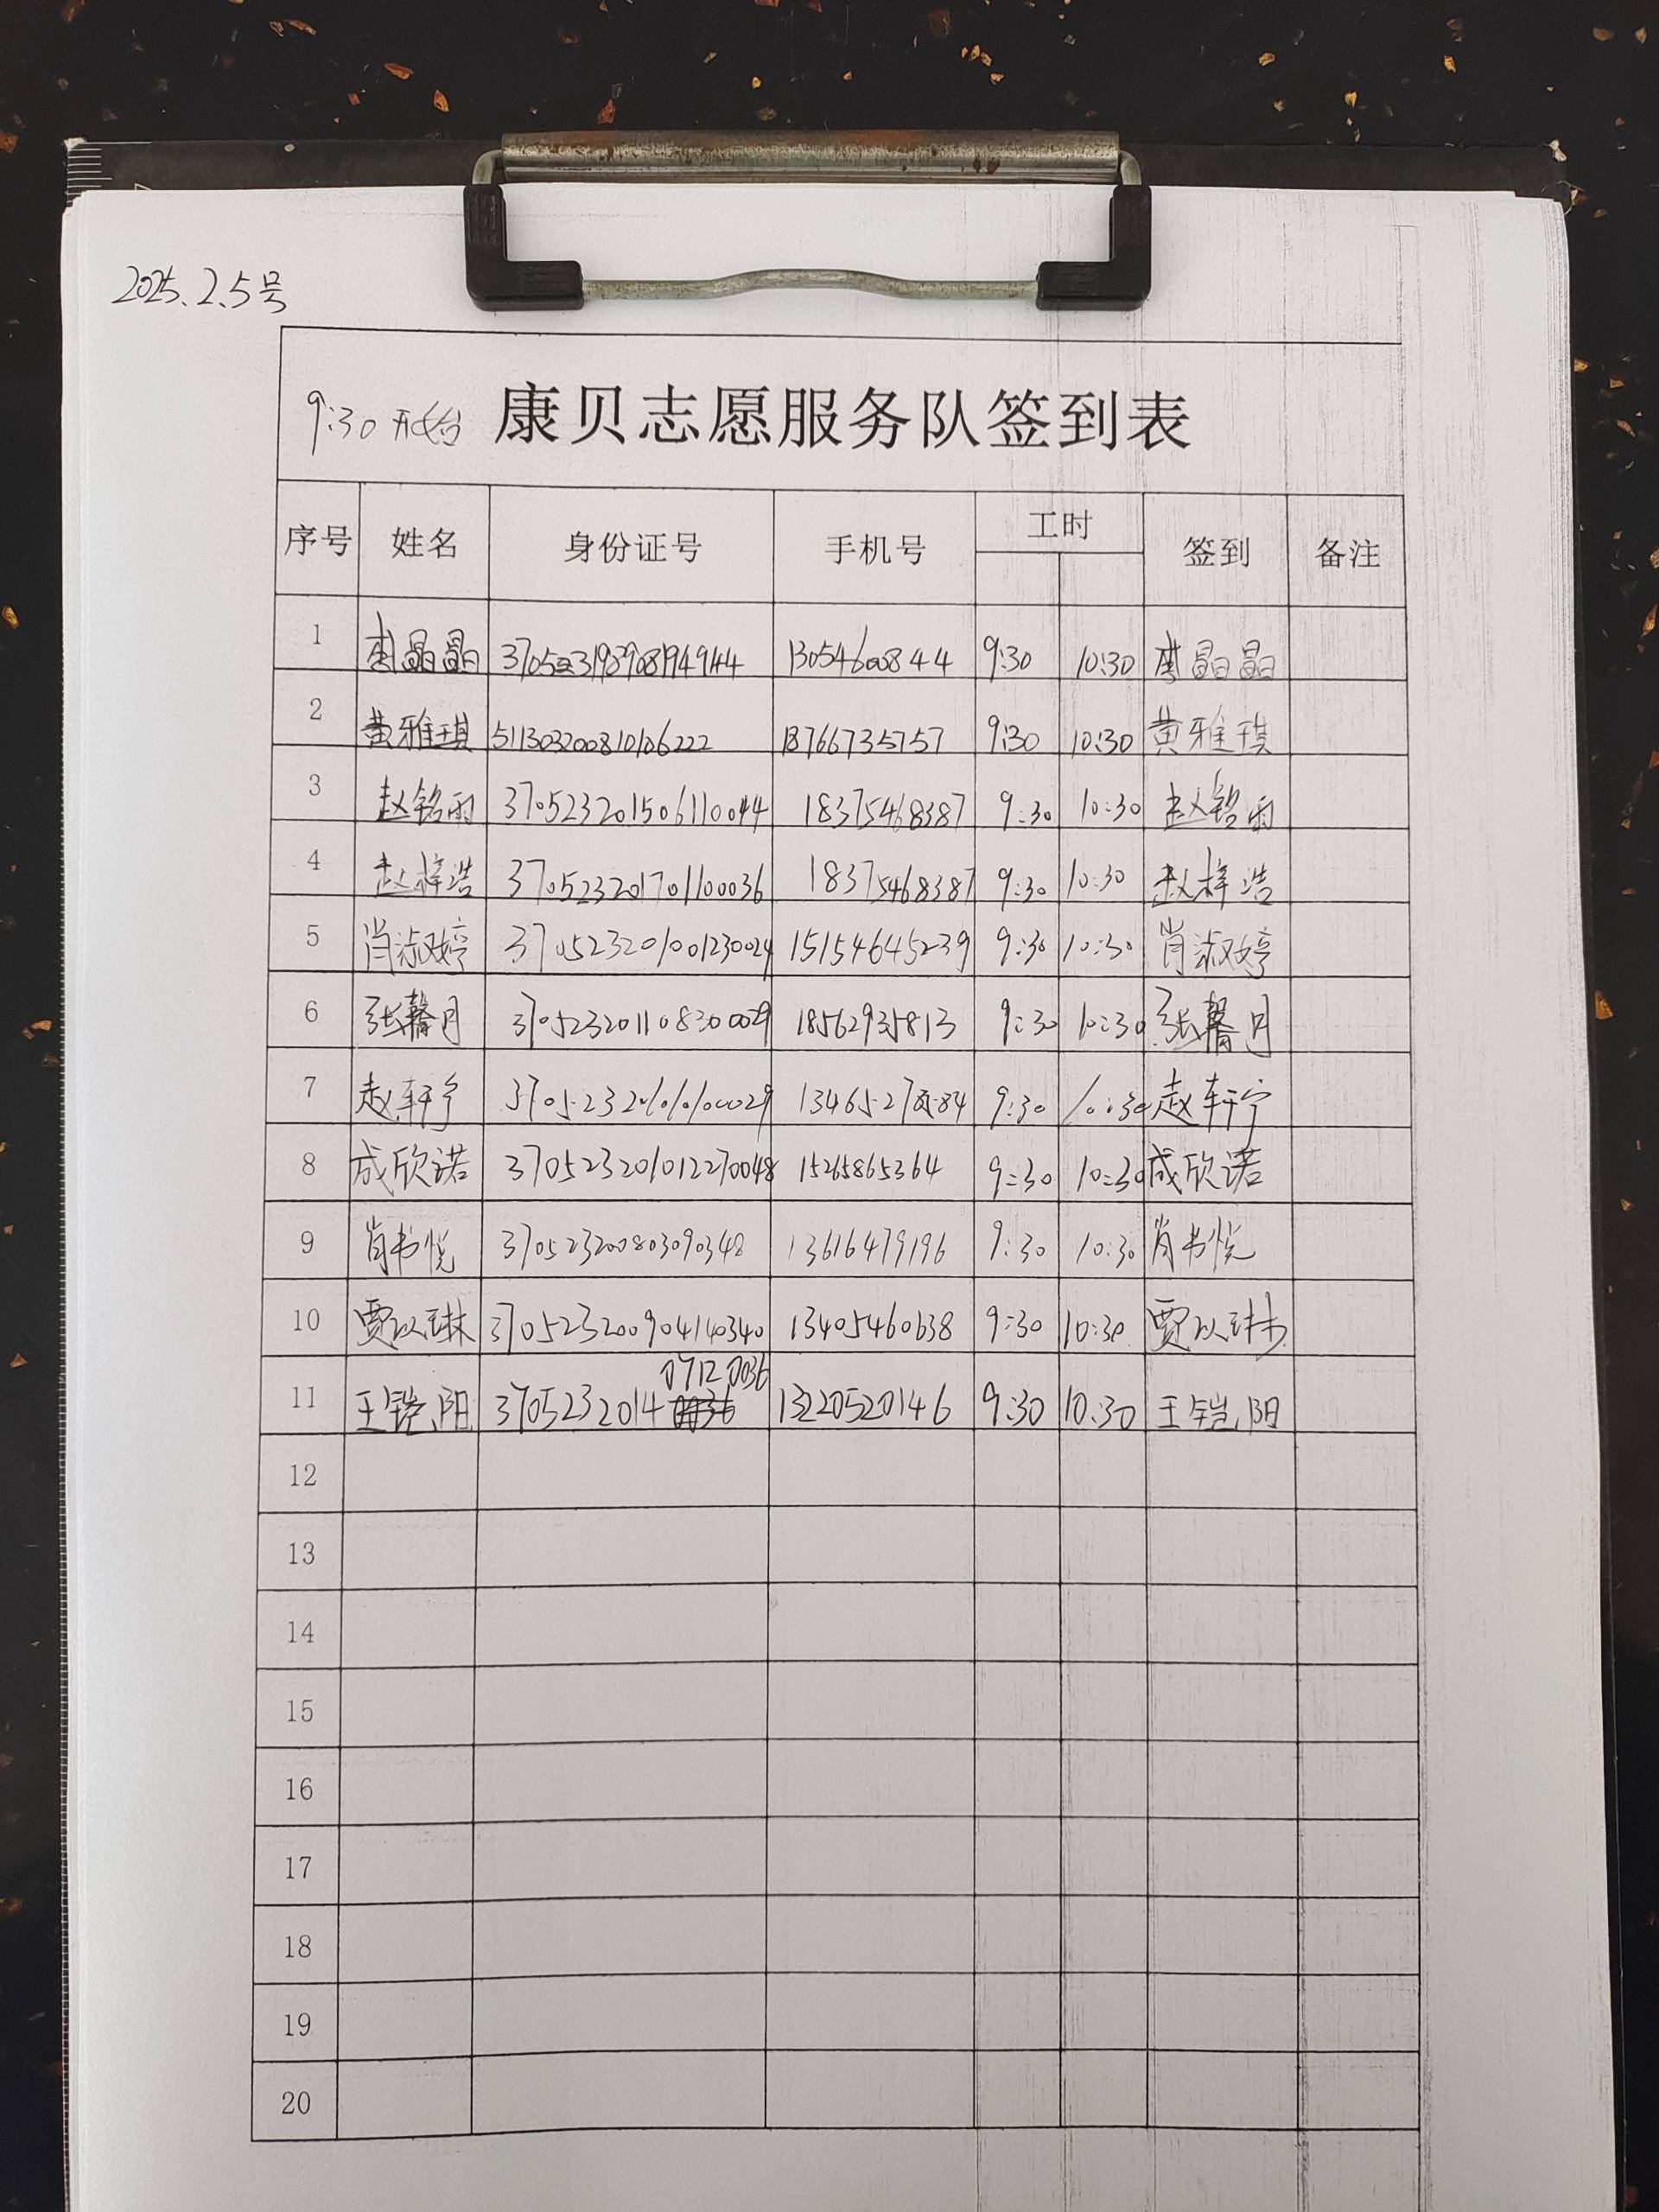 2025.2.5号
9:30开始 康贝志愿服务队签到表
序号 姓名 身份证号 手机号 工时 签到 备注
1 李晶晶 13054600844 9:30 10:30 李晶晶
2 黄雅琪 511303200810106222 18766735757 9:30 10:30 黄雅琪
3 赵铭雨 370523201506110044 18375468387 9:30 10:30 赵铭雨
4 赵梓浩 370523201701100036 18375468387 9:30 10:30 赵梓浩
5 肖淑婷 370523201001230024 15154645239 9:30 10:30 肖淑婷
6 张馨月 370523201108300029 18562935813 9:30 10:30 张馨月
7 赵轩宁 9:30 10:30 赵轩宁
8 成欣诺 370523201012270048 15265865364 9:30 10:30 成欣诺
9 肖书悦 370523200803090348 13616479196 9:30 10:30 肖书悦
10 贾以琳 370523200904140340 13405460638 9:30 10:30 贾以琳
07120036
11 王铠阳 3705232014 13220520146 9:30 10:30 王铠阳
12
13
14
15
16
17
18
19
20